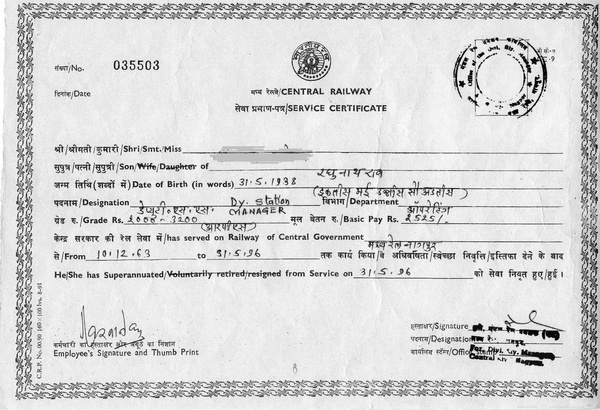 संख्या/No. 035503
दिनांक/Date
मध्य रेलवे/CENTRAL RAILWAY
सेवा प्रमाण-पत्र/SERVICE CERTIFICATE
श्री/श्रीमती/कुमारी/Shri/Smt./Miss
सुपुत्र/पत्नी/सुपुत्री/Son/Wife/Daughter of रघुनाथ राव
जन्म तिथि (शब्दों में) Date of Birth (in words) 31.5.1938 (इकतीस मई उन्नीस सौ अड़तीस)
पदनाम/Designation डेप्युटी. एस. एस. Dy. Station MANAGER विभाग/Department ऑपरेटिंग
ग्रेड रु./Grade Rs. 2000-3200 (आरपीएस) मूल वेतन रु./Basic Pay Rs. 2525/-
केन्द्र सरकार की रेल सेवा में/has served on Railway of Central Government मध्य रेल नागपुर
से/From 10.12.63 to 31.5.96 तक कार्य किया/व अधिवर्षिता/स्वेच्छा निवृत्ति/इस्तिफा देने के बाद
He/She has Superannuated/Voluntarily retired/resigned from Service on 31.5.96 को सेवा निवृत्त हुए/हुई।
हस्ताक्षर/Signature
कर्मचारी का हस्ताक्षर और अंगूठे का निशान
Employee's Signature and Thumb Print
पदनाम/Designation
कार्यालय स्टैंप/Office
For. Divl.
Central Nagpur